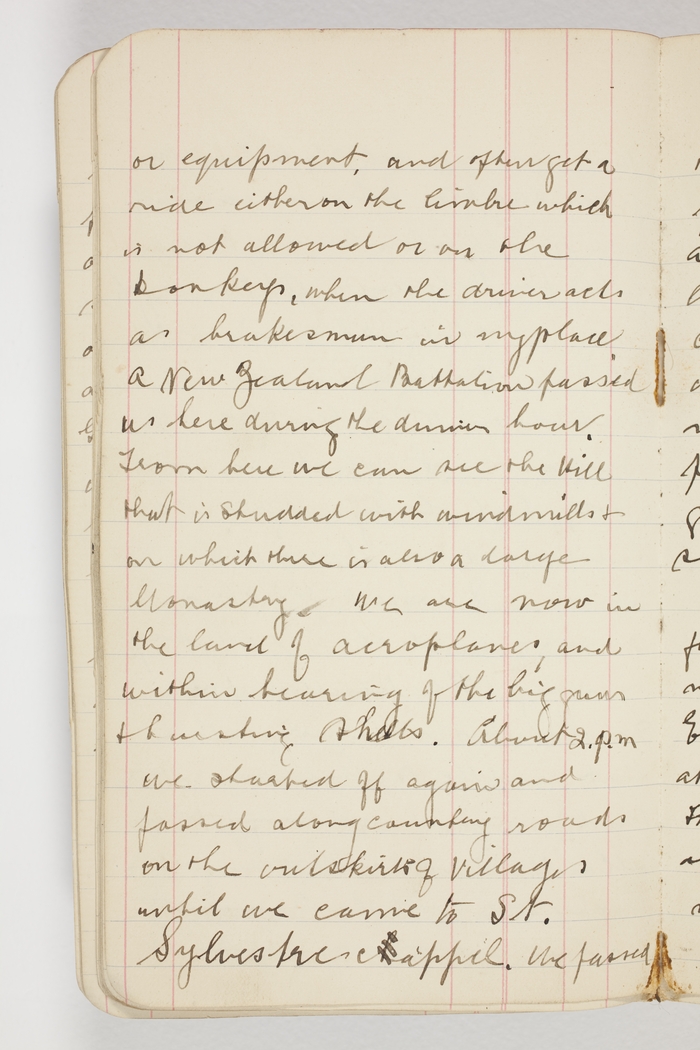 or equipment, and often get a
ride either on the limbre which
is not allowed or on the
donkeys, when the driver acts
as brakesman in my place
A New Zealand Battalion passed
us here during the dinner hour.
From here we can see the Hill
that is studded with windmills &
on which there is also a large
Monastry. We are now in
the land of aeroplanes, and
within hearing of the big guns
& bursting shells. About 2.p.m
we started off again and
passed along country roads
on the outskirts of villages
until we came to St.
Sylvestre cappel. We passed